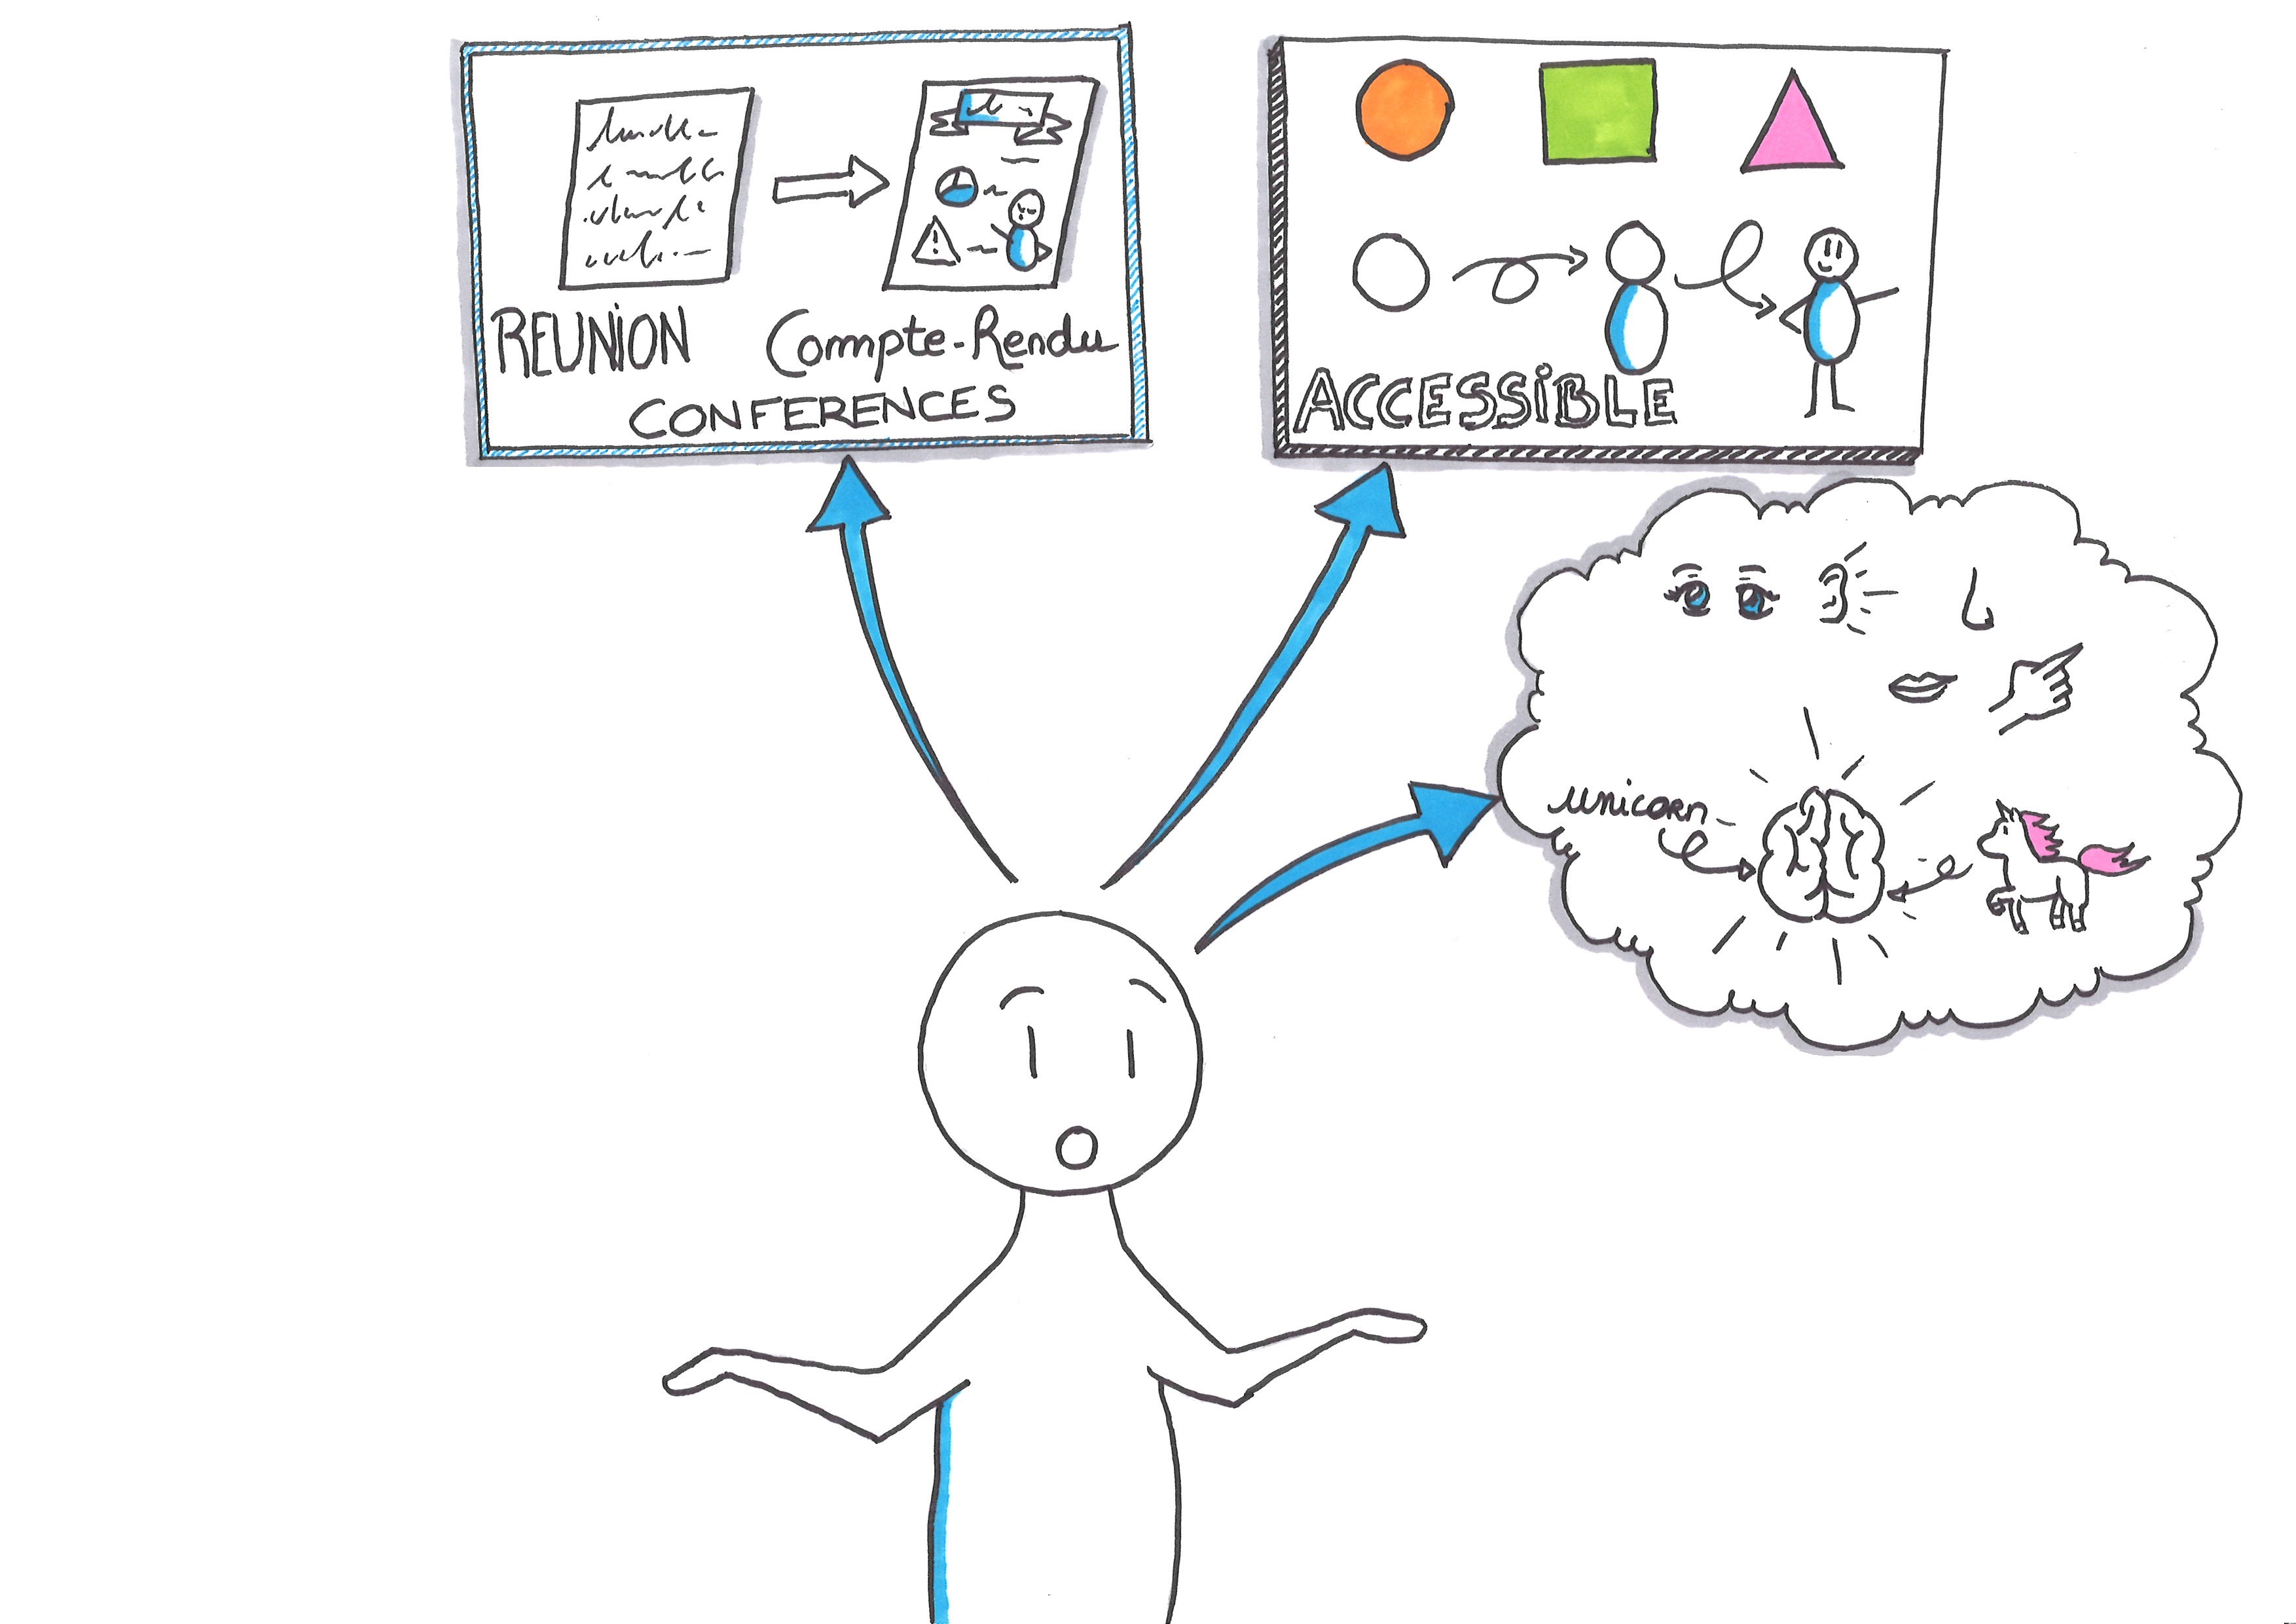 REUNION Compte-Rendu
CONFERENCES
ACCESSIBLE
unicorn